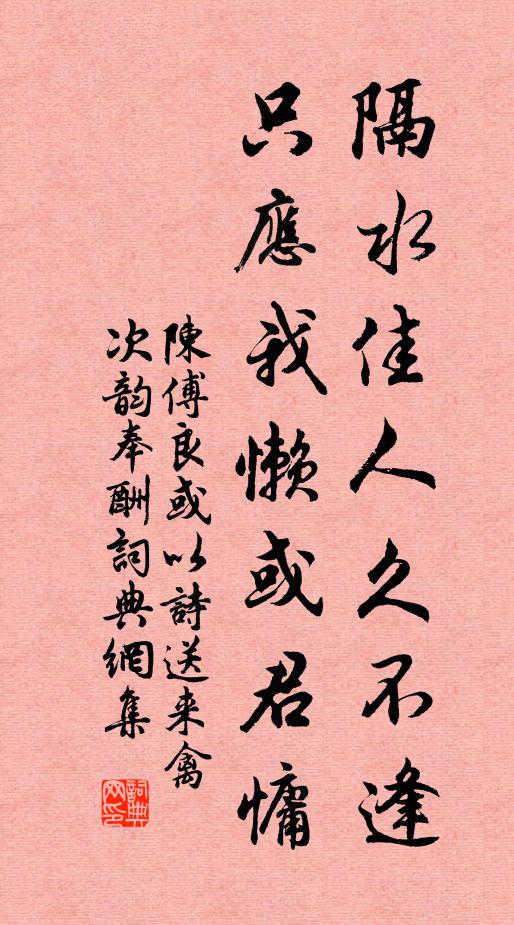 隔水佳人久不逢
只應我懶或君慵
陳傅良或以詩送来禽
次韵奉酬詞典網集
詞典
网印